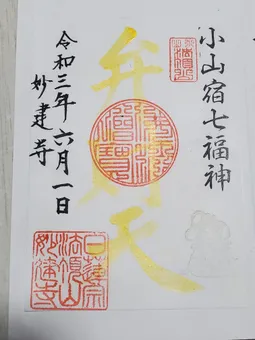 小山宿七福神
弁財天
令和三年六月一日
妙建寺
日蓮宗
法頂山
妙建寺